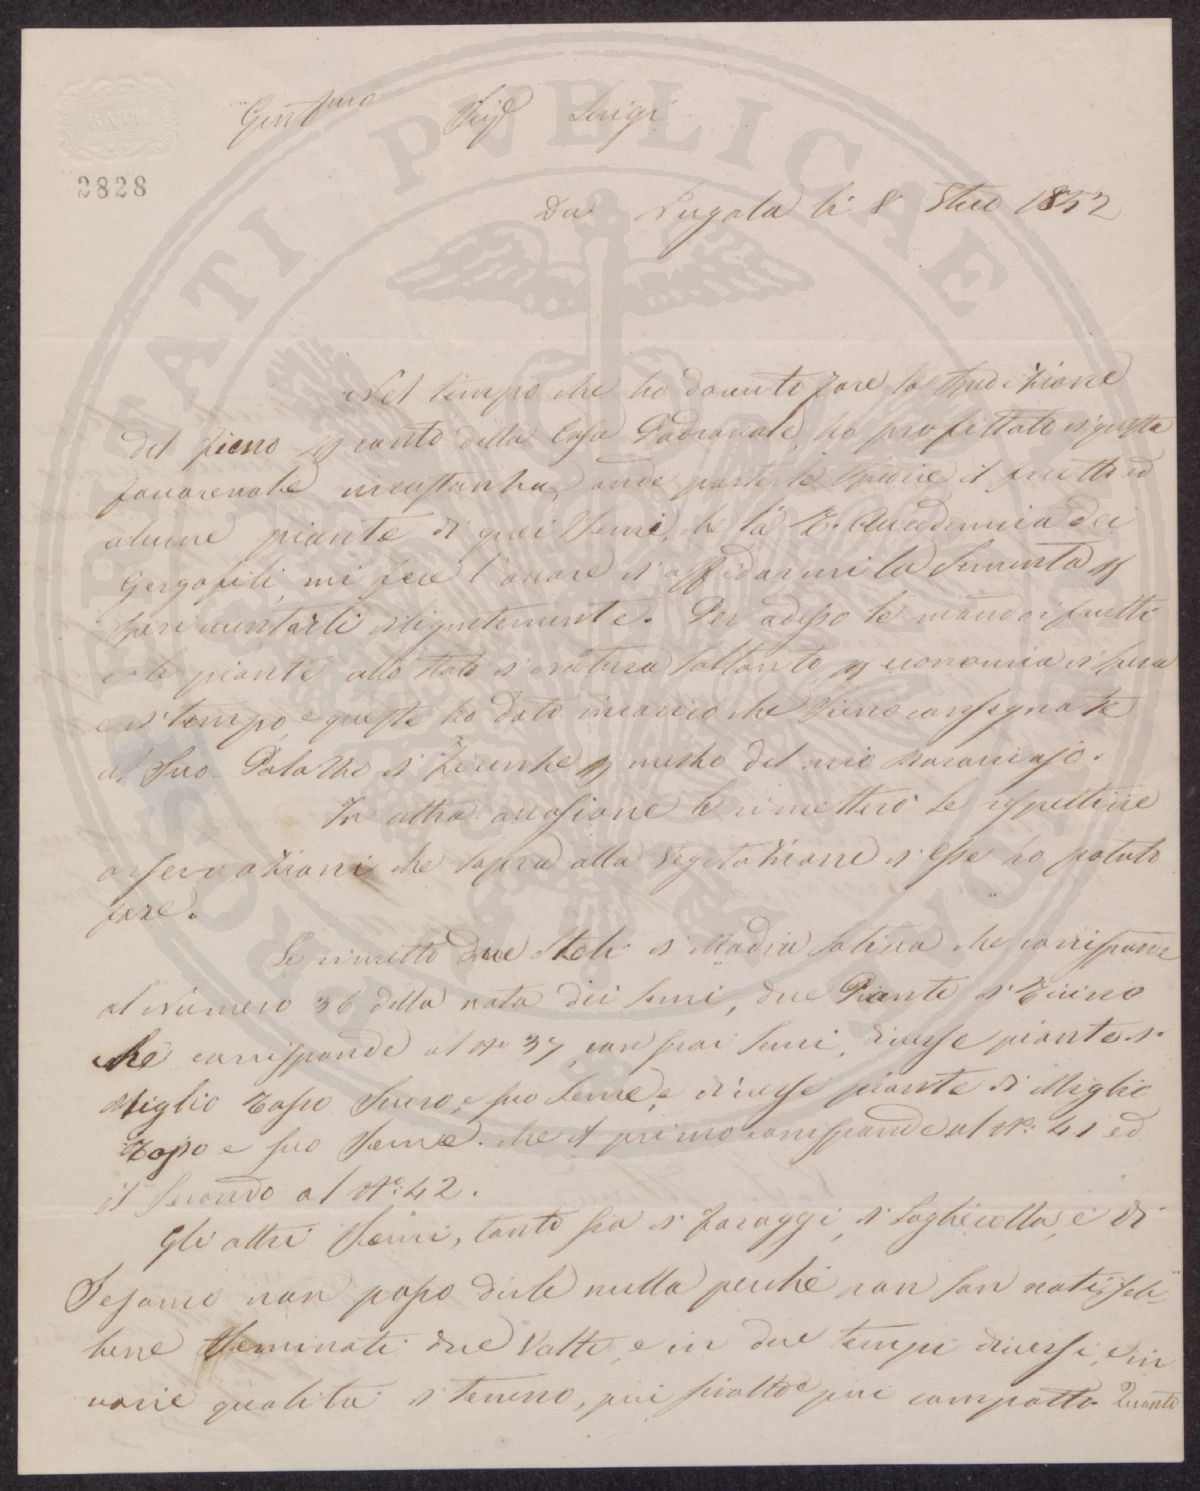 2828
Gentmo Sigr Luigi
Da Nugola li 8 8bre 1852
Nel tempo che ho dovuto fare la spedizione
del fieno per conto della Casa Padronale, ho profittato di questa
favorevole circostanza, onde poterle spedire il frutto ed
alcune piante di quei Semi, che la R. Accademia dei
Gergofili, mi fece l'onore d'affidarmi la Sementa per
sperimentarli diligentemente. Per adesso le mando i frutti
e le piante allo stato di natura soltanto, per economia di spesa
e di tempo, e queste ho dato incarico che sieno consegnate
al Suo Palazzo di Firenze per mezzo del mio Navicellajo.
In altra occasione le rimetterò le respettive
osservazioni che sopra alla vegetazione di esse ho potuto
fare.
Le rimetto due Steli di Madia Sativa che corrisponde
al Numero 36 della nota dei semi, due Piante di Ricino
che corrisponde al No 37 con suoi semi, diverse piante di
Miglio Rosso Scuro, e suo Seme, e diverse piante di Miglio
Rosso e suo Seme. che il primo corrisponde al No: 41 ed
il Secondo al No: 42.
Gli altri Semi, tanto sia di Foraggi, di Saggineella, e di
Sesamo non posso dirle nulla perché non son nati, seb-
bene Seminati due Volte, e in due tempi diversi, e in
varie qualità di terreno, più sciolto e più compatto. Quanto